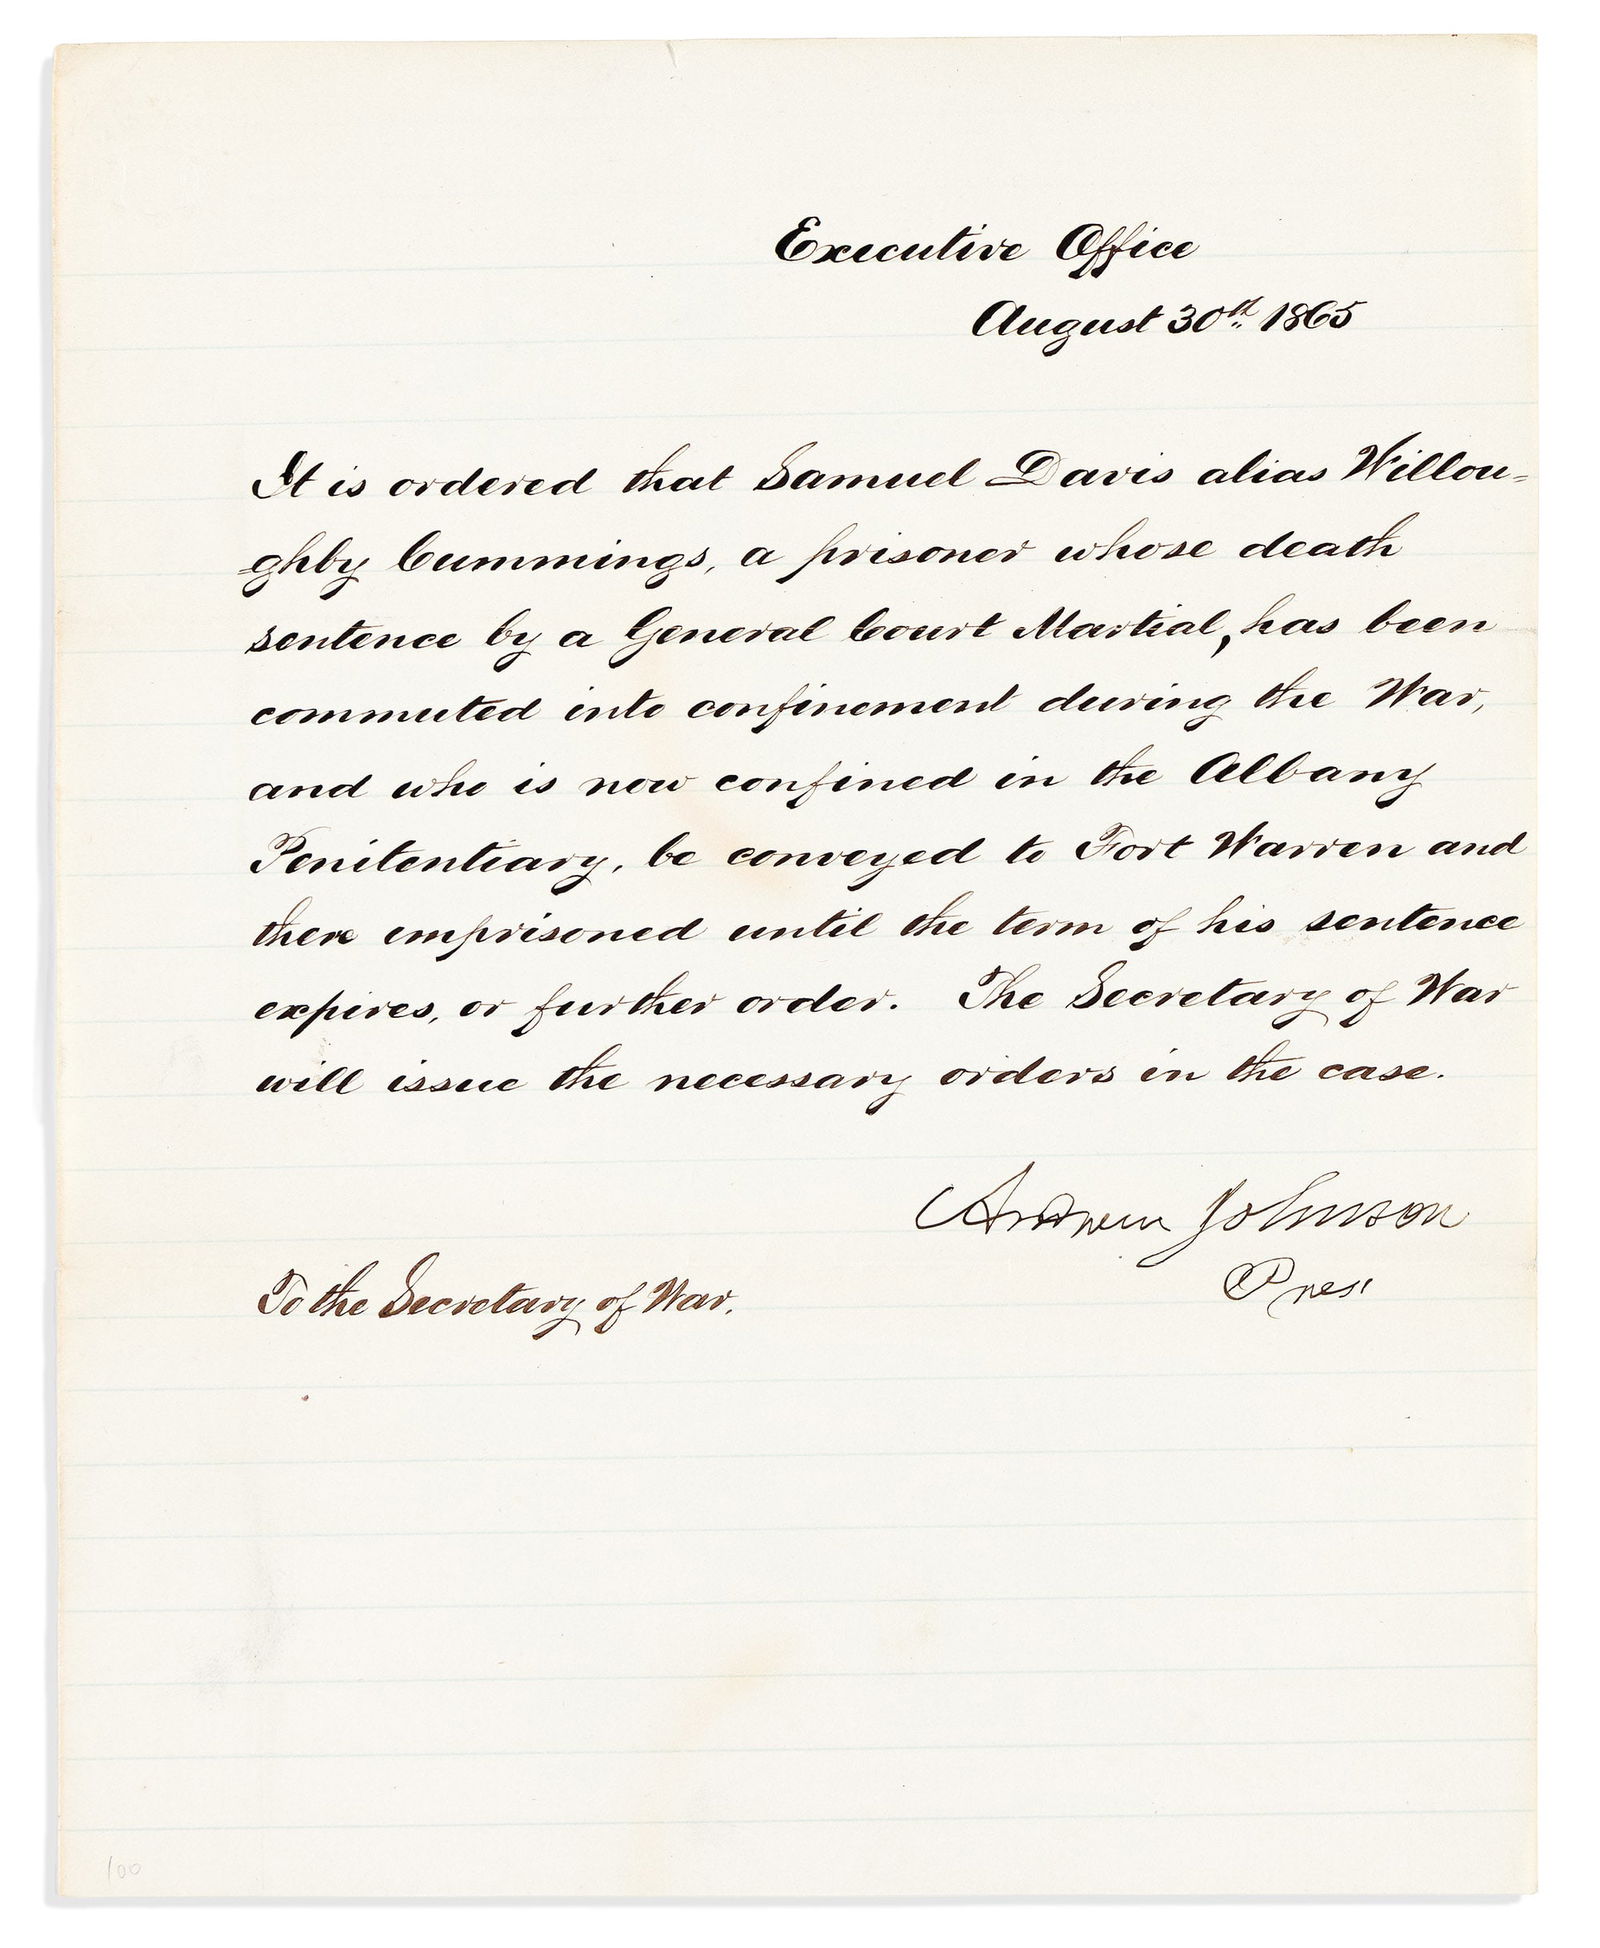 Executive Office
August 30th 1865
It is ordered that Samuel Davis alias Willou=
ghby Cummings, a prisoner whose death
sentence by a General Court Martial, has been
commuted into confinement during the War,
and who is now confined in the Albany
Penitentiary, be conveyed to Fort Warren and
there imprisoned until the term of his sentence
expires, or further order. The Secretary of War
will issue the necessary orders in the case.
Andrew Johnson
Pres.
To the Secretary of War.
100